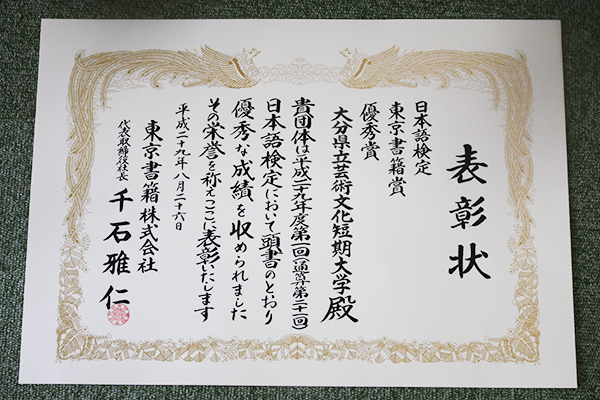 表彰状
日本語検定
東京書籍賞
優秀賞
大分県立芸術文化短期大学殿
貴団体は平成二十九年度第一回(通算第二十一回)
日本語検定において頭書のとおり
優秀な成績を収められました
その栄誉を称えここに表彰いたします
平成二十九年八月二十六日
東京書籍株式会社
代表取締役社長 千石雅仁